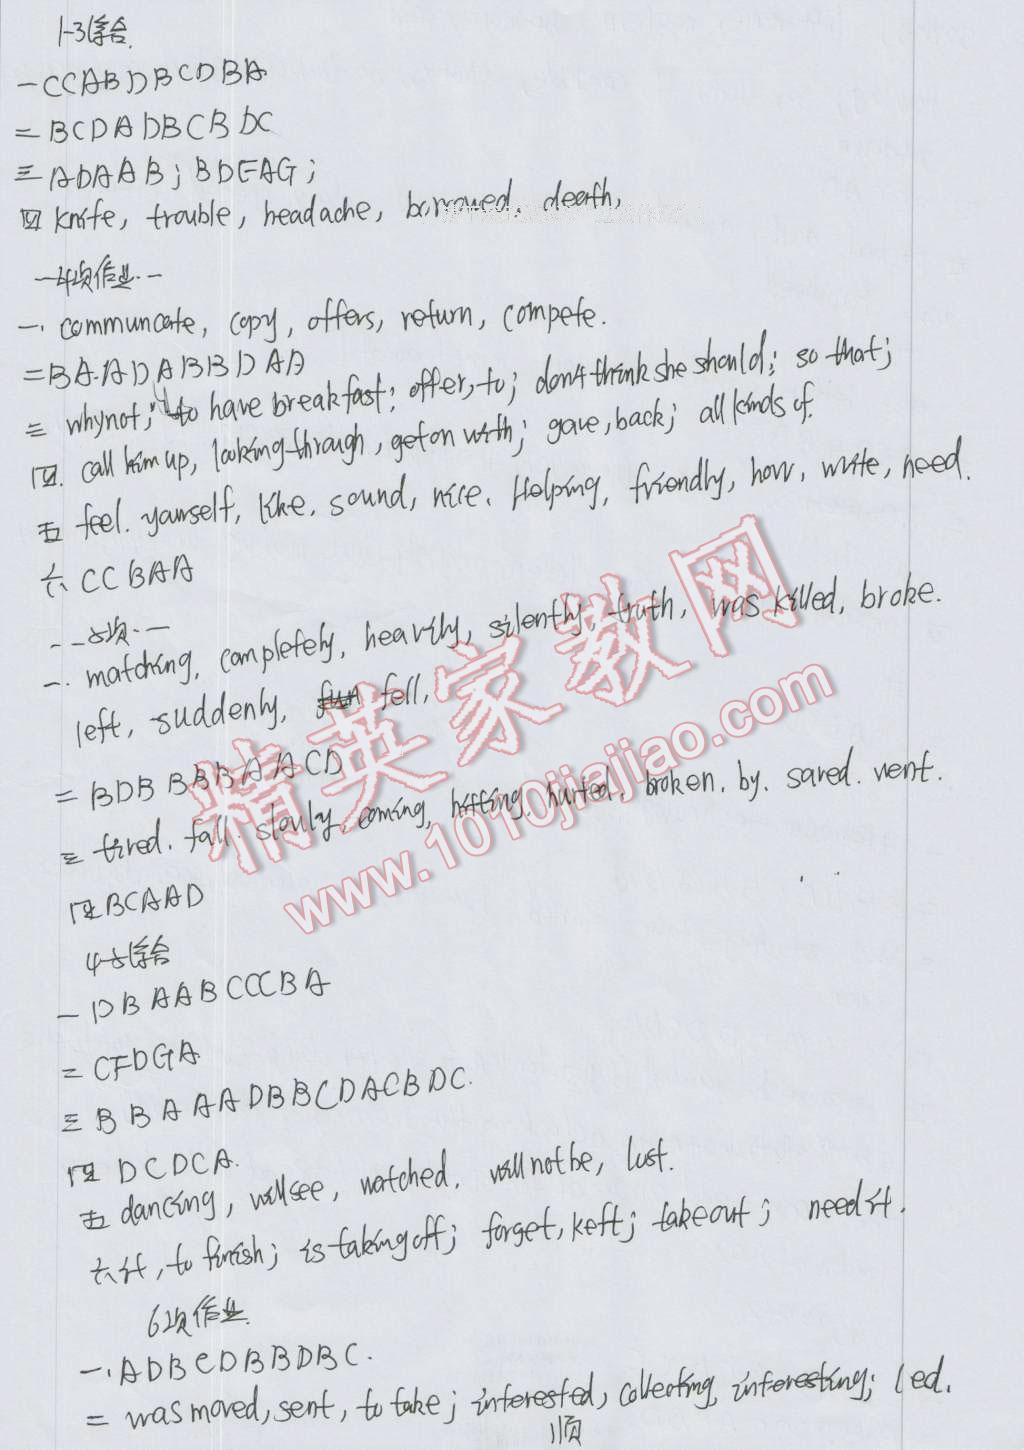 1-3综合.
一 CCABDBCDBA
二 BCDADBCBDC
三 ADAAB; BDEAG;
四 knife, trouble, headache, borrowed, death,
一4项作业·一
一. communcate, copy, offers, return, compete.
二 BA.ADABBDAB
三 whynot; to have breakfast; offer, to; don't think she should; so that;
四. call him up, looking through, get on with; gave, back; all kinds of.
五 feel. yourself, like, sound, nice. Helping, friendly, how, write, need.
六 CCBAA
一. matching, completely, heavily, silently, truth, was killed, broke.
left, suddenly, fell,
二 BDBBBBAACD
三 tired. fall. slowly, coming, hitting, hurted, broken. by. saved. went.
四 BCAAD
综合
一 DBAABCCCBA
二 CFDGA
三 BBAAADBBCDACBDC.
四 DCDCA.
五 dancing, willsee, watched, willnotbe, lost.
六 it, to finish; is taking off; forget, keft; takeout; need it.
6项作业
一. ADBCDBBDBC.
二 was moved, sent, to take; interested, collecting, interesting; led.
顺
精英家教网
www.1010jiajiao.com